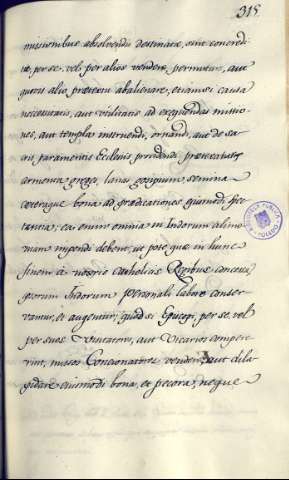 315
missionibus absolvendis destinatae, sint concredi-
tae, per se, vel per alios vendere, permutare, aut
quovis alio praetextu abalienare, etiamsi causa
necessitatis, aut utilitatis ad exequendas missio-
nes, aut templa instruendi, ornandi, aut de sa-
cris paramentis Ecclesia providendi praetextatis
armenta, greges, lanas, gosipium, semina
coeteraque bona ad praedicationes ejusmodi spe-
tantia; ea enim omnia in Indorum alimo-
niam impendi debent, ut pote quae in hunc
finem à nostris catholicis Regibus concessa,
quorum Indorum personali labore conser-
vantur, et augentur; quod si Episcopi, per se, vel
per suos Visitatores, aut Vicarios compere-
rint, missos Concionatores vendere, aut dila-
pidare eiusmodi bona, et pecora, neque